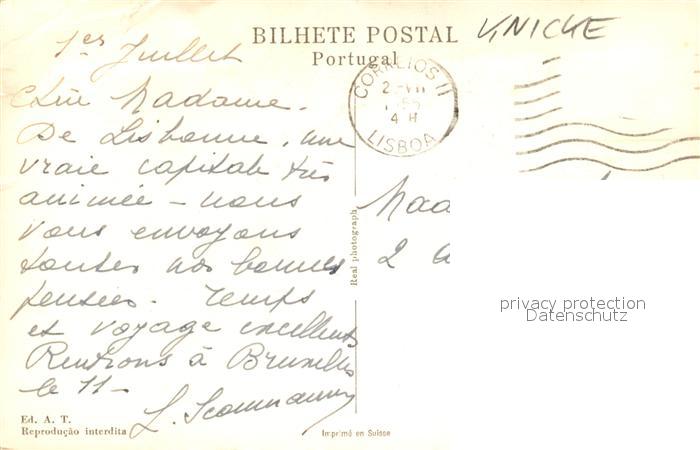 BILHETE POSTAL
Portugal
VINICKE
CORREIOS 11
4 H
LISBOA
1er Juillet
Chère Madame.
De Lisbonne, une
vraie capitale très
animée – nous
vous envoyons
toutes nos bonnes
pensées. Temps
et voyage excellents
Rentrons à Bruxelles
le 11 –
L.
Real photograph
2
privacy protection
Datenschutz
Ed. A. T.
Reprodução interdita
Imprimé en Suisse